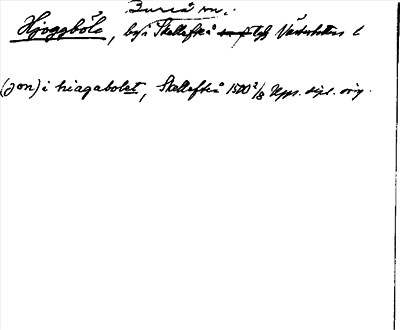 Bureå sn.
Hjoggböle, by i Skellefteå Västerbottens l
(Jon) i hiagabolet, Skellefteå 1500 2/8 Upps. dipl. orig.